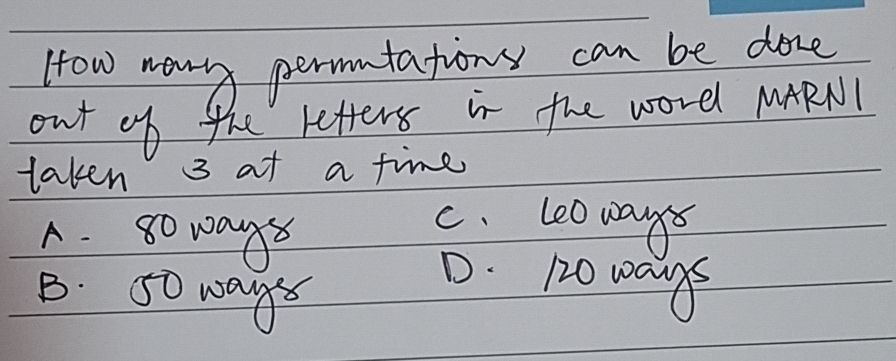 How many permutations can be done
out of the letters in the word MARNI
taken 3 at a time
A - 80 ways C. 60 ways
B. 50 ways D. 120 ways